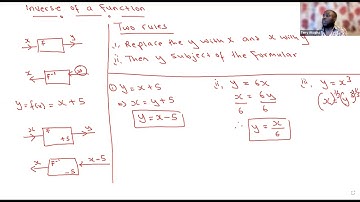 Inverse of a Function
x f y
x f⁻¹
y = f(x) = x + 5
x f +5 y
x f⁻¹ -5 x-5
Two rules
i, Replace the y with x and x with y
ii, Then y subject of the Formular
① y = x + 5
⇒ x = y + 5
y = x - 5
ii, y = 6x
x/6 = 6y/6
∴ y = x/6
iii, y = x³